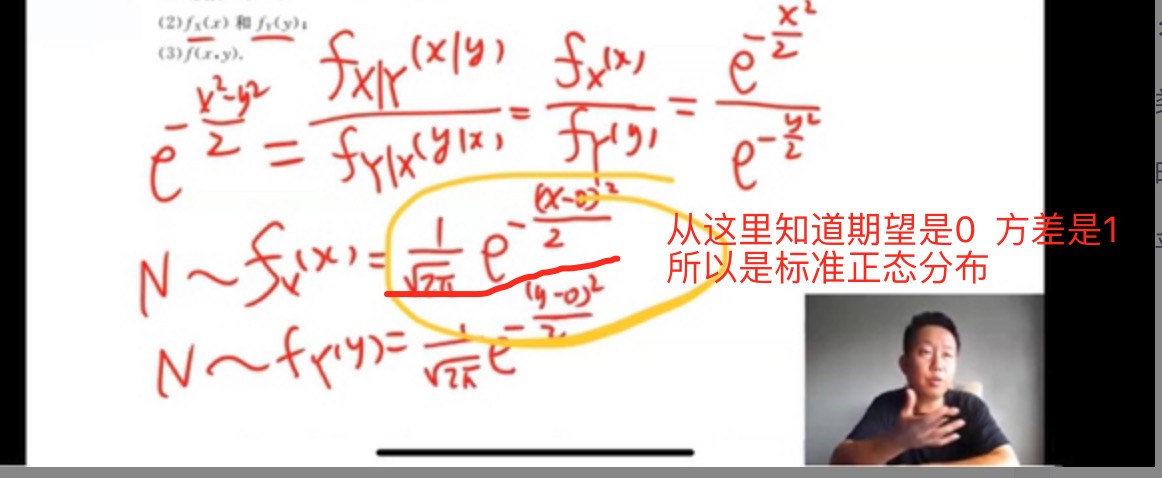 (2) f_X(x) 和 f_Y(y);
(3) f(x,y).
e^{-\frac{x^2-y^2}{2}} = \frac{f_{X|Y}(x|y)}{f_{Y|X}(y|x)} = \frac{f_X(x)}{f_Y(y)} = \frac{e^{-\frac{x^2}{2}}}{e^{-\frac{y^2}{2}}}
N ~ f_X(x) = \frac{1}{\sqrt{2π}} e^{-\frac{(x-0)^2}{2}}
从这里知道期望是0 方差是1
所以是标准正态分布
N ~ f_Y(y) = \frac{1}{\sqrt{2π}} e^{-\frac{(y-0)^2}{2}}